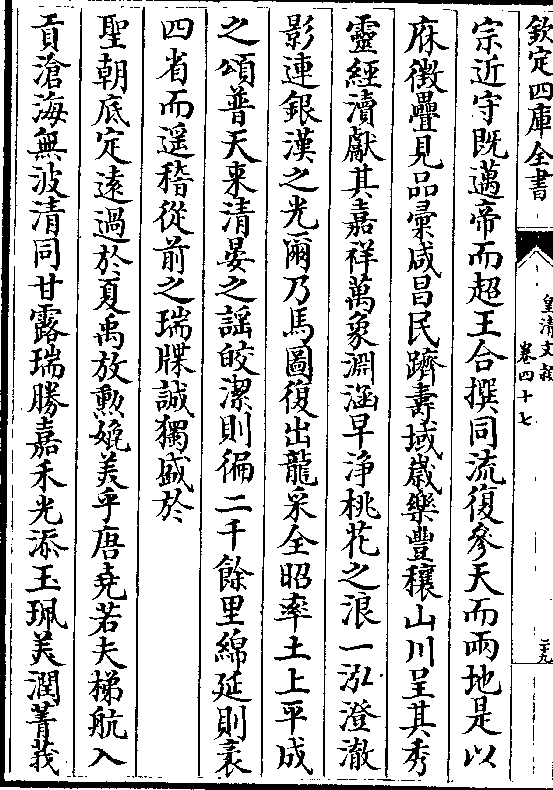 欽定四庫全書
皇清文穎
卷四十七
二十九
宗近守既邁帝而超王合撰同流復參天而兩地是以
庥徵疊見品彚咸昌民躋壽域歳樂豐穰山川呈其秀
靈經瀆獻其嘉祥萬象淵涵早浄桃花之浪一泓澄澈
影連銀漢之光爾乃馬圖復出龍采全昭率土上平成
之頌普天来清晏之謡皎潔則徧二千餘里綿延則袤
四省而遥稽從前之瑞牒誠獨盛於
聖朝底定遠過於夏禹放勲媲美乎唐堯若夫梯航入
貢滄海無波清同甘露瑞勝嘉禾光添玉珮美潤菁莪